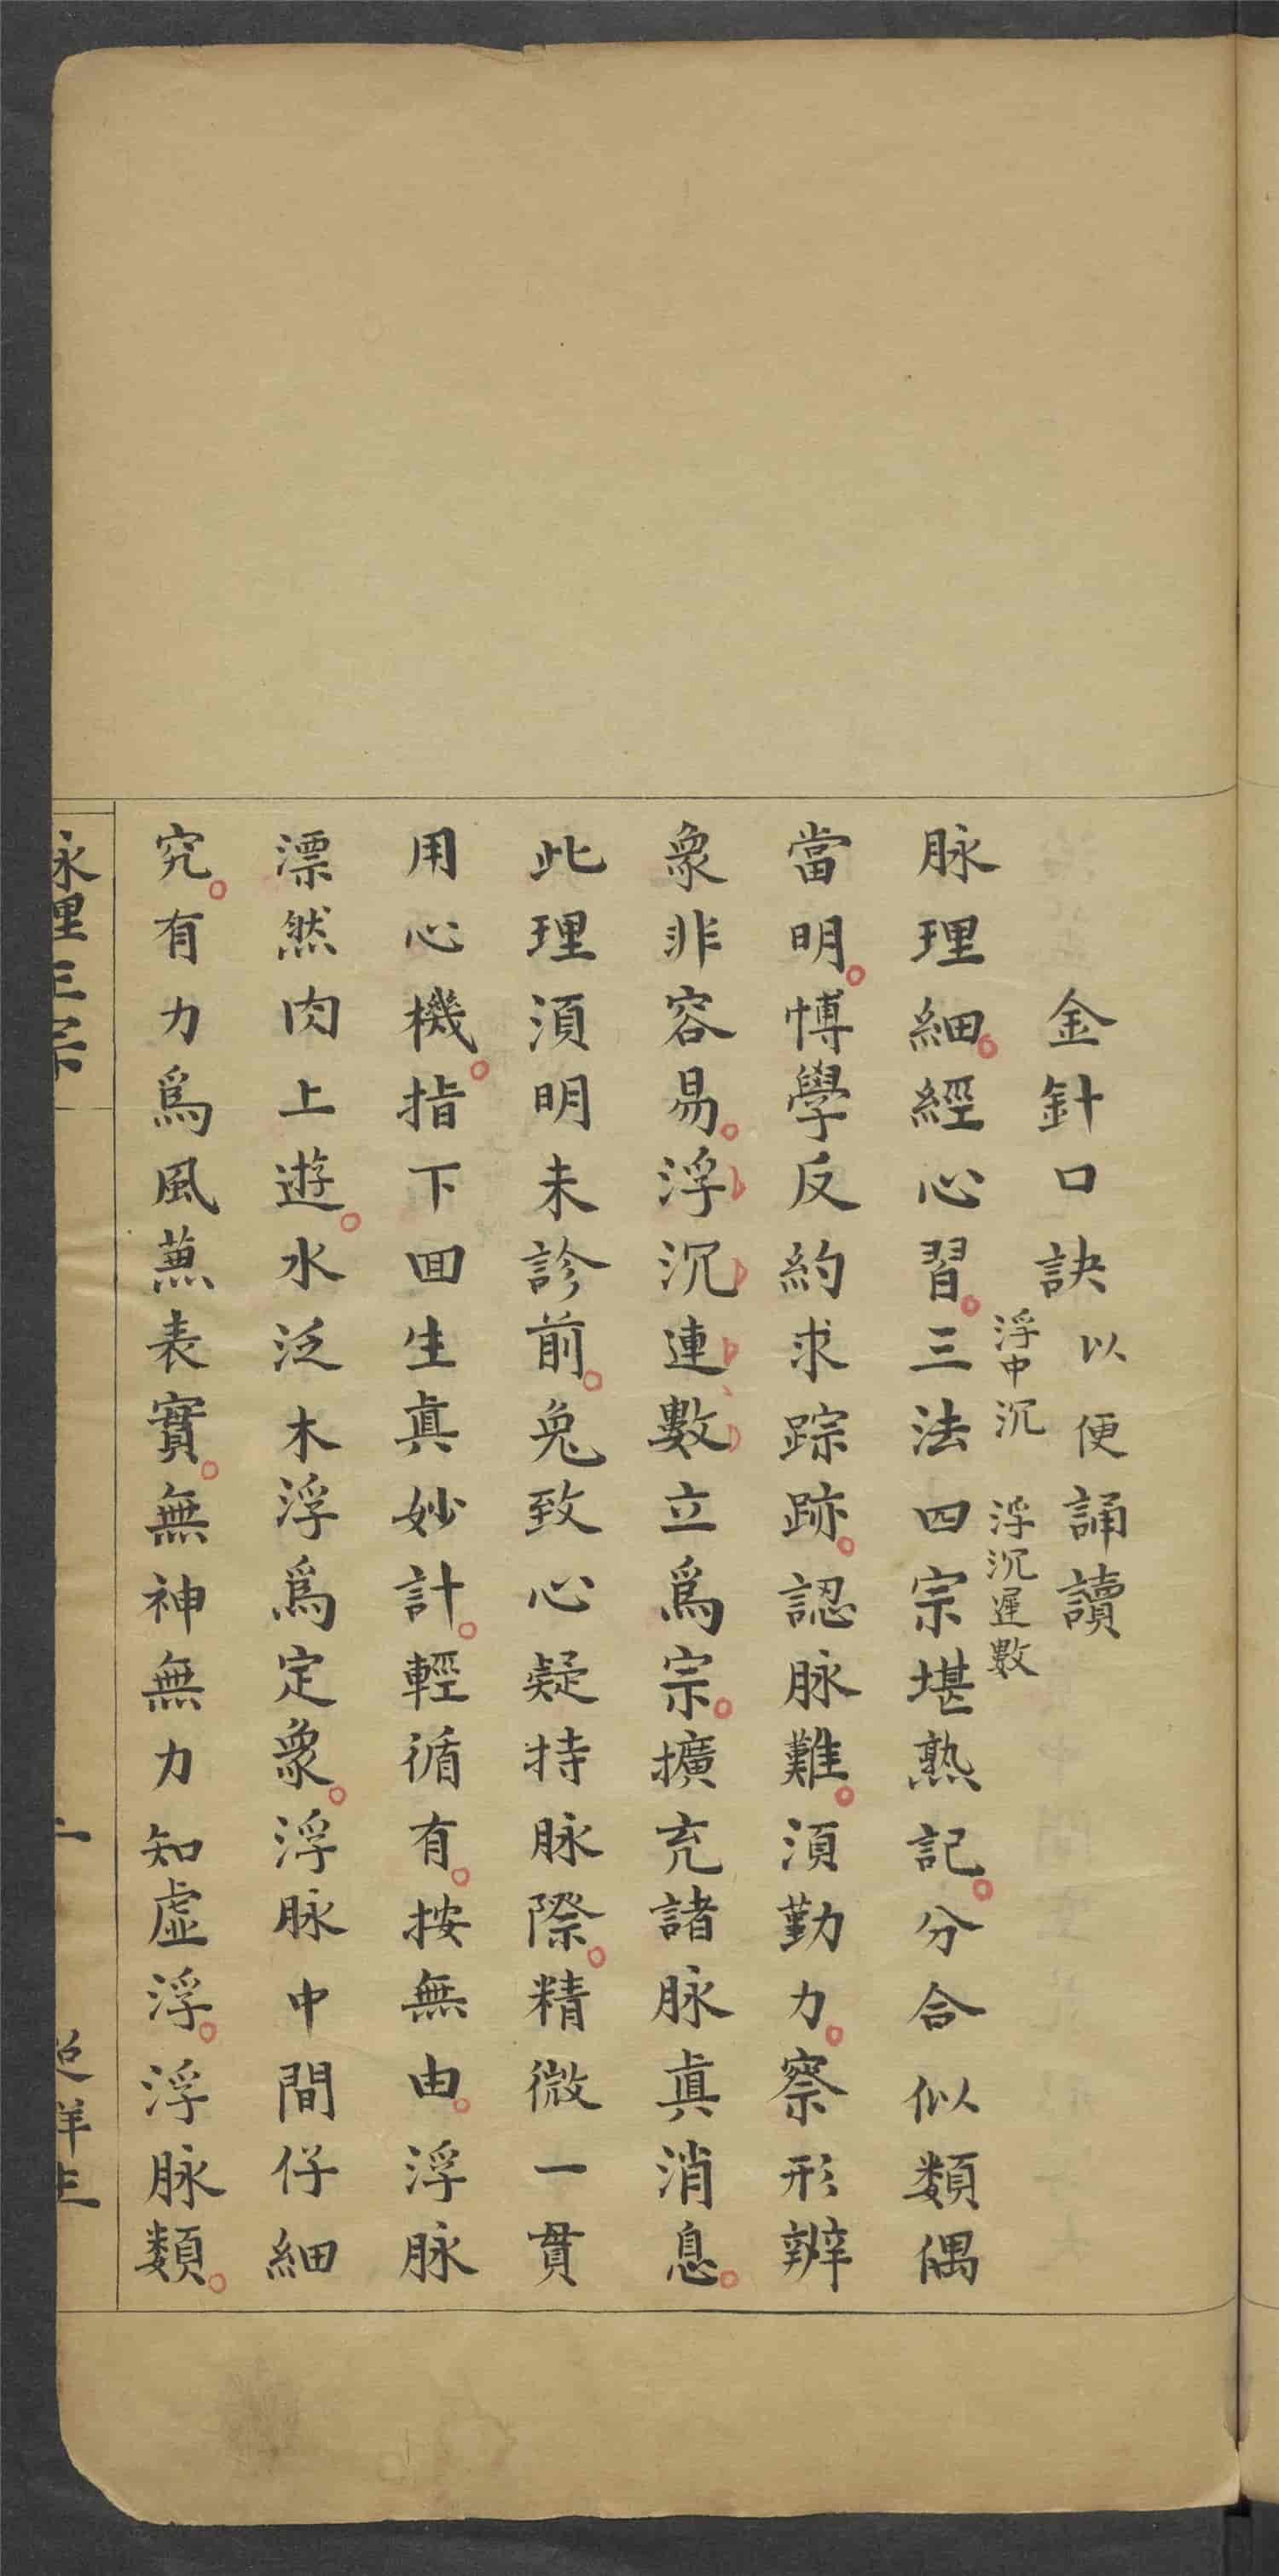 金針口訣以便誦讀
浮中沉 浮沉遲數
脉理細。經心習。三法四宗堪熟記。分合似類偶
當明。博學反約求踪跡。認脉難。須勤力。察形辨
衆非容易。浮沉連數立爲宗。擴充諸脉眞消息。
此理須明未診前。免致心疑持脉際。精微一貫
用心機。指下回生眞妙計。輕循有。按無由。浮脉
漂然肉上遊。水泛木浮爲定衆。浮脉中間仔細
究。有力爲風蒹表實。無神無力知虛浮。浮脉類。
脉理正宗